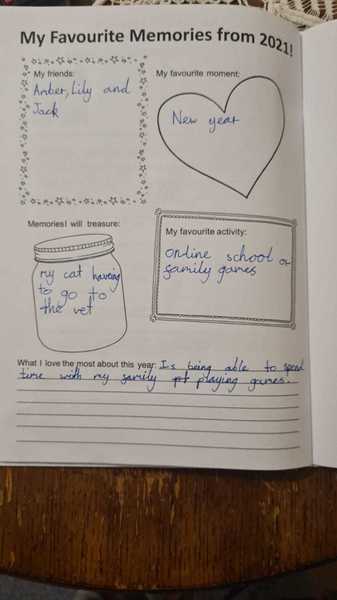 My Favourite Memories from 2021!
My friends:
Amber, Lily and
Jack
My favourite moment:
New year
Memories I will treasure:
my cat having
to go to
the vet
My favourite activity:
online school or
family games
What I love the most about this year: Is being able to spend
time with my family playing games.